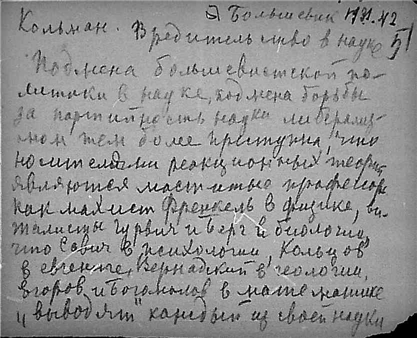 Большевик 1931. №2
Кольман. Вредительство в науке 51
Подмена большевистской по-
литики в науке, подмена борьбы
за партийность науки либерализ-
мом тем более преступна, что
носителями реакционных теорий
являются маститые профессора
как махист Френкель в физике, ви-
талисты Гурвич и Берг в биологии,
что Савич в психологии, Кольцов
в евгенике, Вернадский в геологии,
Егоров и Богомолов в математике
"выводят" каждый из своей науки